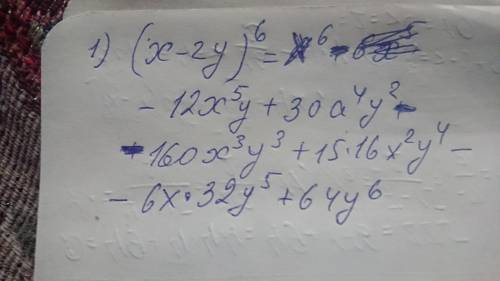 1) (x-2y)⁶ = x⁶ -
- 12x⁵y + 30a⁴y² -
- 160x³y³ + 15·16x²y⁴ -
- 6x·32y⁵ + 64y⁶